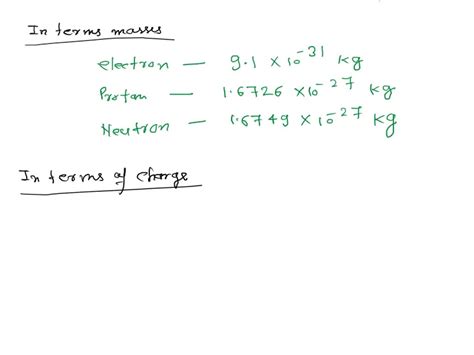 In terms masses
electron — 9.1 × 10⁻³¹ kg
Protan — 1.6726 × 10⁻²⁷ kg
Neutron — 1.6749 × 10⁻²⁷ kg
In terms of charge